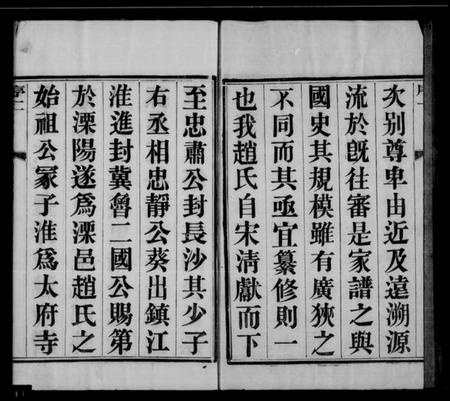 次别尊卑由近及遠溯源
流於旣往審是家譜之與
國史其規模雖有廣狹之
不同而其亟宜纂修則一
也我趙氏自宋淸獻而下
至忠肅公封長沙其少子
右丞相忠靜公葵出鎮江
淮進封冀魯二國公賜第
於溧陽遂爲溧邑趙氏之
始祖公冢子淮爲太府寺
序二